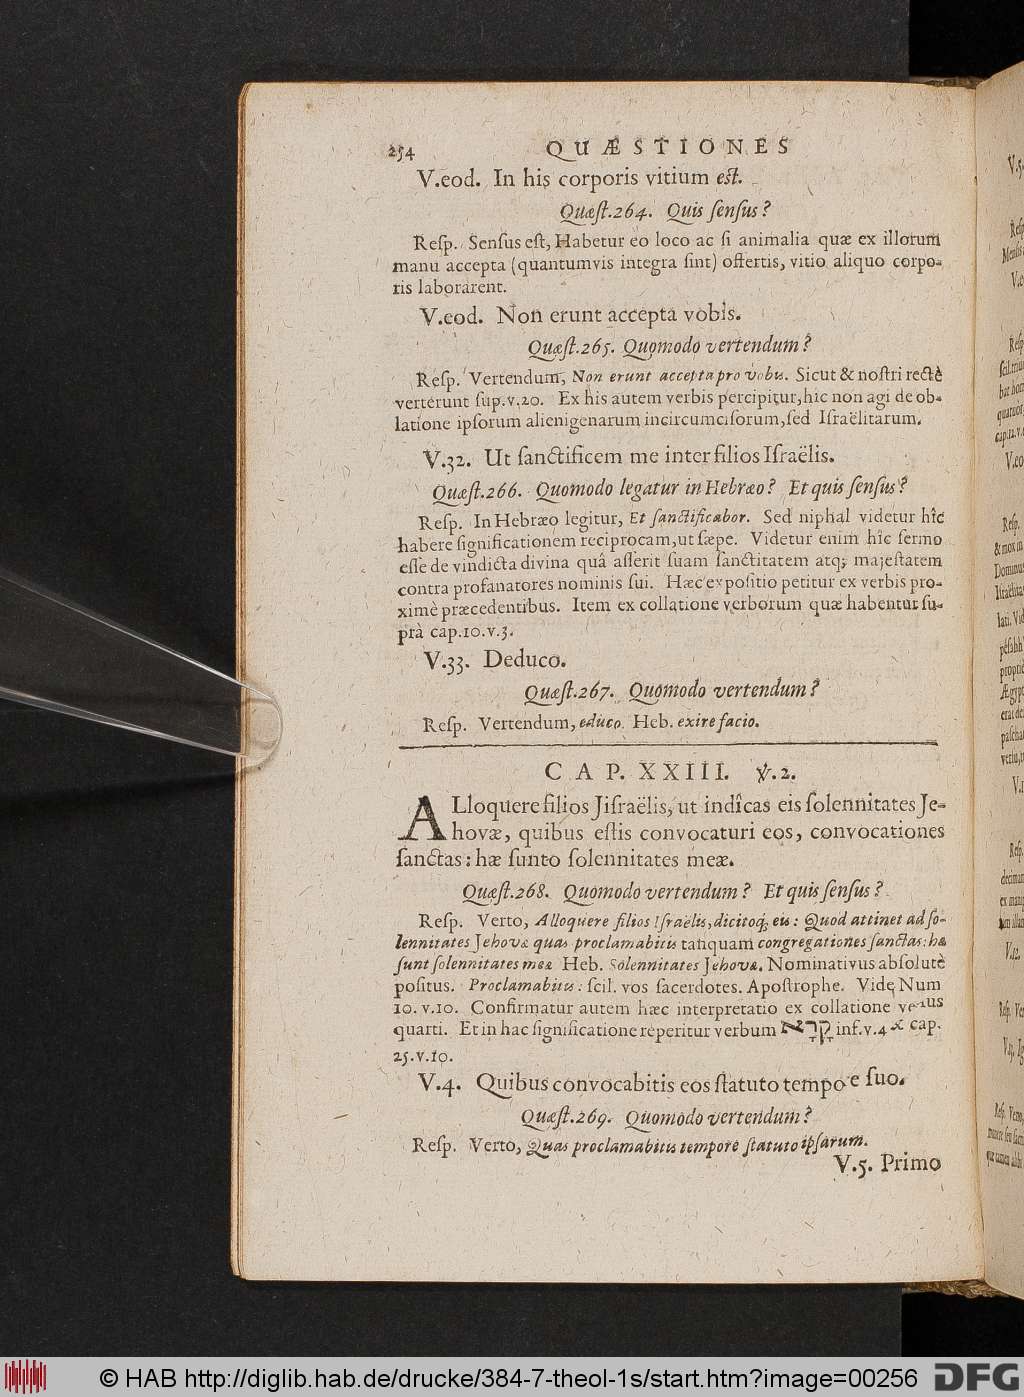 254 QUÆSTIONES
V.eod. In his corporis vitium est.
Quæſt.264. Quis ſenſus?
Reſp. Senſus eſt, Habetur eo loco ac ſi animalia quæ ex illorum
manu accepta (quantumvis integra ſint) offertis, vitio aliquo corpo-
ris laborarent.
V.eod. Non erunt accepta vobis.
Quæſt.265. Quomodo vertendum?
Reſp. Vertendum, Non erunt accepta pro vobis. Sicut & noſtri rectè
verterunt ſup.v.20. Ex his autem verbis percipitur, hîc non agi de ob-
latione ipſorum alienigenarum incircumciſorum, ſed Iſraëlitarum.
V.32. Ut ſanctificem me inter filios Iſraëlis.
Quæſt.266. Quomodo legatur in Hebræo? Et quis ſenſus?
Reſp. In Hebræo legitur, Et ſanctificabor. Sed niphal videtur hîc
habere ſignificationem reciprocam, ut ſæpe. Videtur enim hîc ſermo
eſſe de vindicta divina quâ aſſerit ſuam ſanctitatem atq; majeſtatem
contra profanatores nominis ſui. Hæc expoſitio petitur ex verbis pro-
ximè præcedentibus. Item ex collatione verborum quæ habentur ſu-
prà cap.10.v.3.
V.33. Deduco.
Quæſt.267. Quomodo vertendum?
Reſp. Vertendum, educo. Heb. exire facio.
CAP. XXIII. V.2.
ALloquere filios Jiſraëlis, ut indîcas eis ſolennitates Je-
hovæ, quibus eſtis convocaturi eos, convocationes
ſanctas: hæ ſunto ſolennitates meæ.
Quæſt.268. Quomodo vertendum? Et quis ſenſus?
Reſp. Verto, Alloquere filios Iſraëlis, dicitoq; eis: Quod attinet ad ſo-
lennitates Jehovæ quas proclamabitis tanquam congregationes ſanctas: hæ
ſunt ſolennitates meæ Heb. Solennitates Jehovæ. Nominativus abſolutè
poſitus. Proclamabitis: ſcil. vos ſacerdotes. Apoſtrophe. Vide Num
10.v.10. Confirmatur autem hæc interpretatio ex collatione verſus
quarti. Et in hac ſignificatione reperitur verbum קָרָא inf.v.4 & cap.
25.v.10.
V.4. Quibus convocabitis eos ſtatuto tempore ſuo.
Quæſt.269. Quomodo vertendum?
Reſp. Verto, Quas proclamabitis tempore ſtatuto ipſarum.
V.5. Primo
© HAB http://diglib.hab.de/drucke/384-7-theol-1s/start.htm?image=00256
DFG